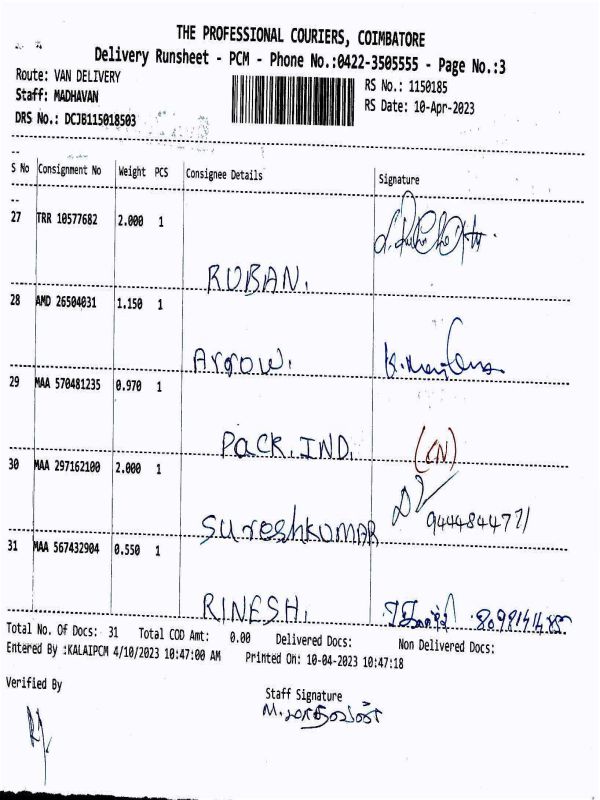 THE PROFESSIONAL COURIERS, COIMBATORE
Delivery Runsheet - PCM - Phone No.:0422-3505555 - Page No.:3
Route: VAN DELIVERY RS No.: 1150185
Staff: MADHAVAN RS Date: 10-Apr-2023
DRS No.: DCJB115018503
S No Consignment No Weight PCS Consignee Details Signature
27 TRR 10577682 2.000 1
RUBAN.
28 AMD 26504031 1.150 1
Arrow.
29 MAA 570481235 0.970 1
Pack.IND. (CN)
30 MAA 297162100 2.000 1
Sureshkumar 9444844771
31 MAA 567432904 0.550 1
RINESH.
Total No. Of Docs: 31 Total COD Amt: 0.00 Delivered Docs: Non Delivered Docs:
Entered By :KALAIPCM 4/10/2023 10:47:00 AM Printed On: 10-04-2023 10:47:18
Verified By
Staff Signature
M.மாதவன்